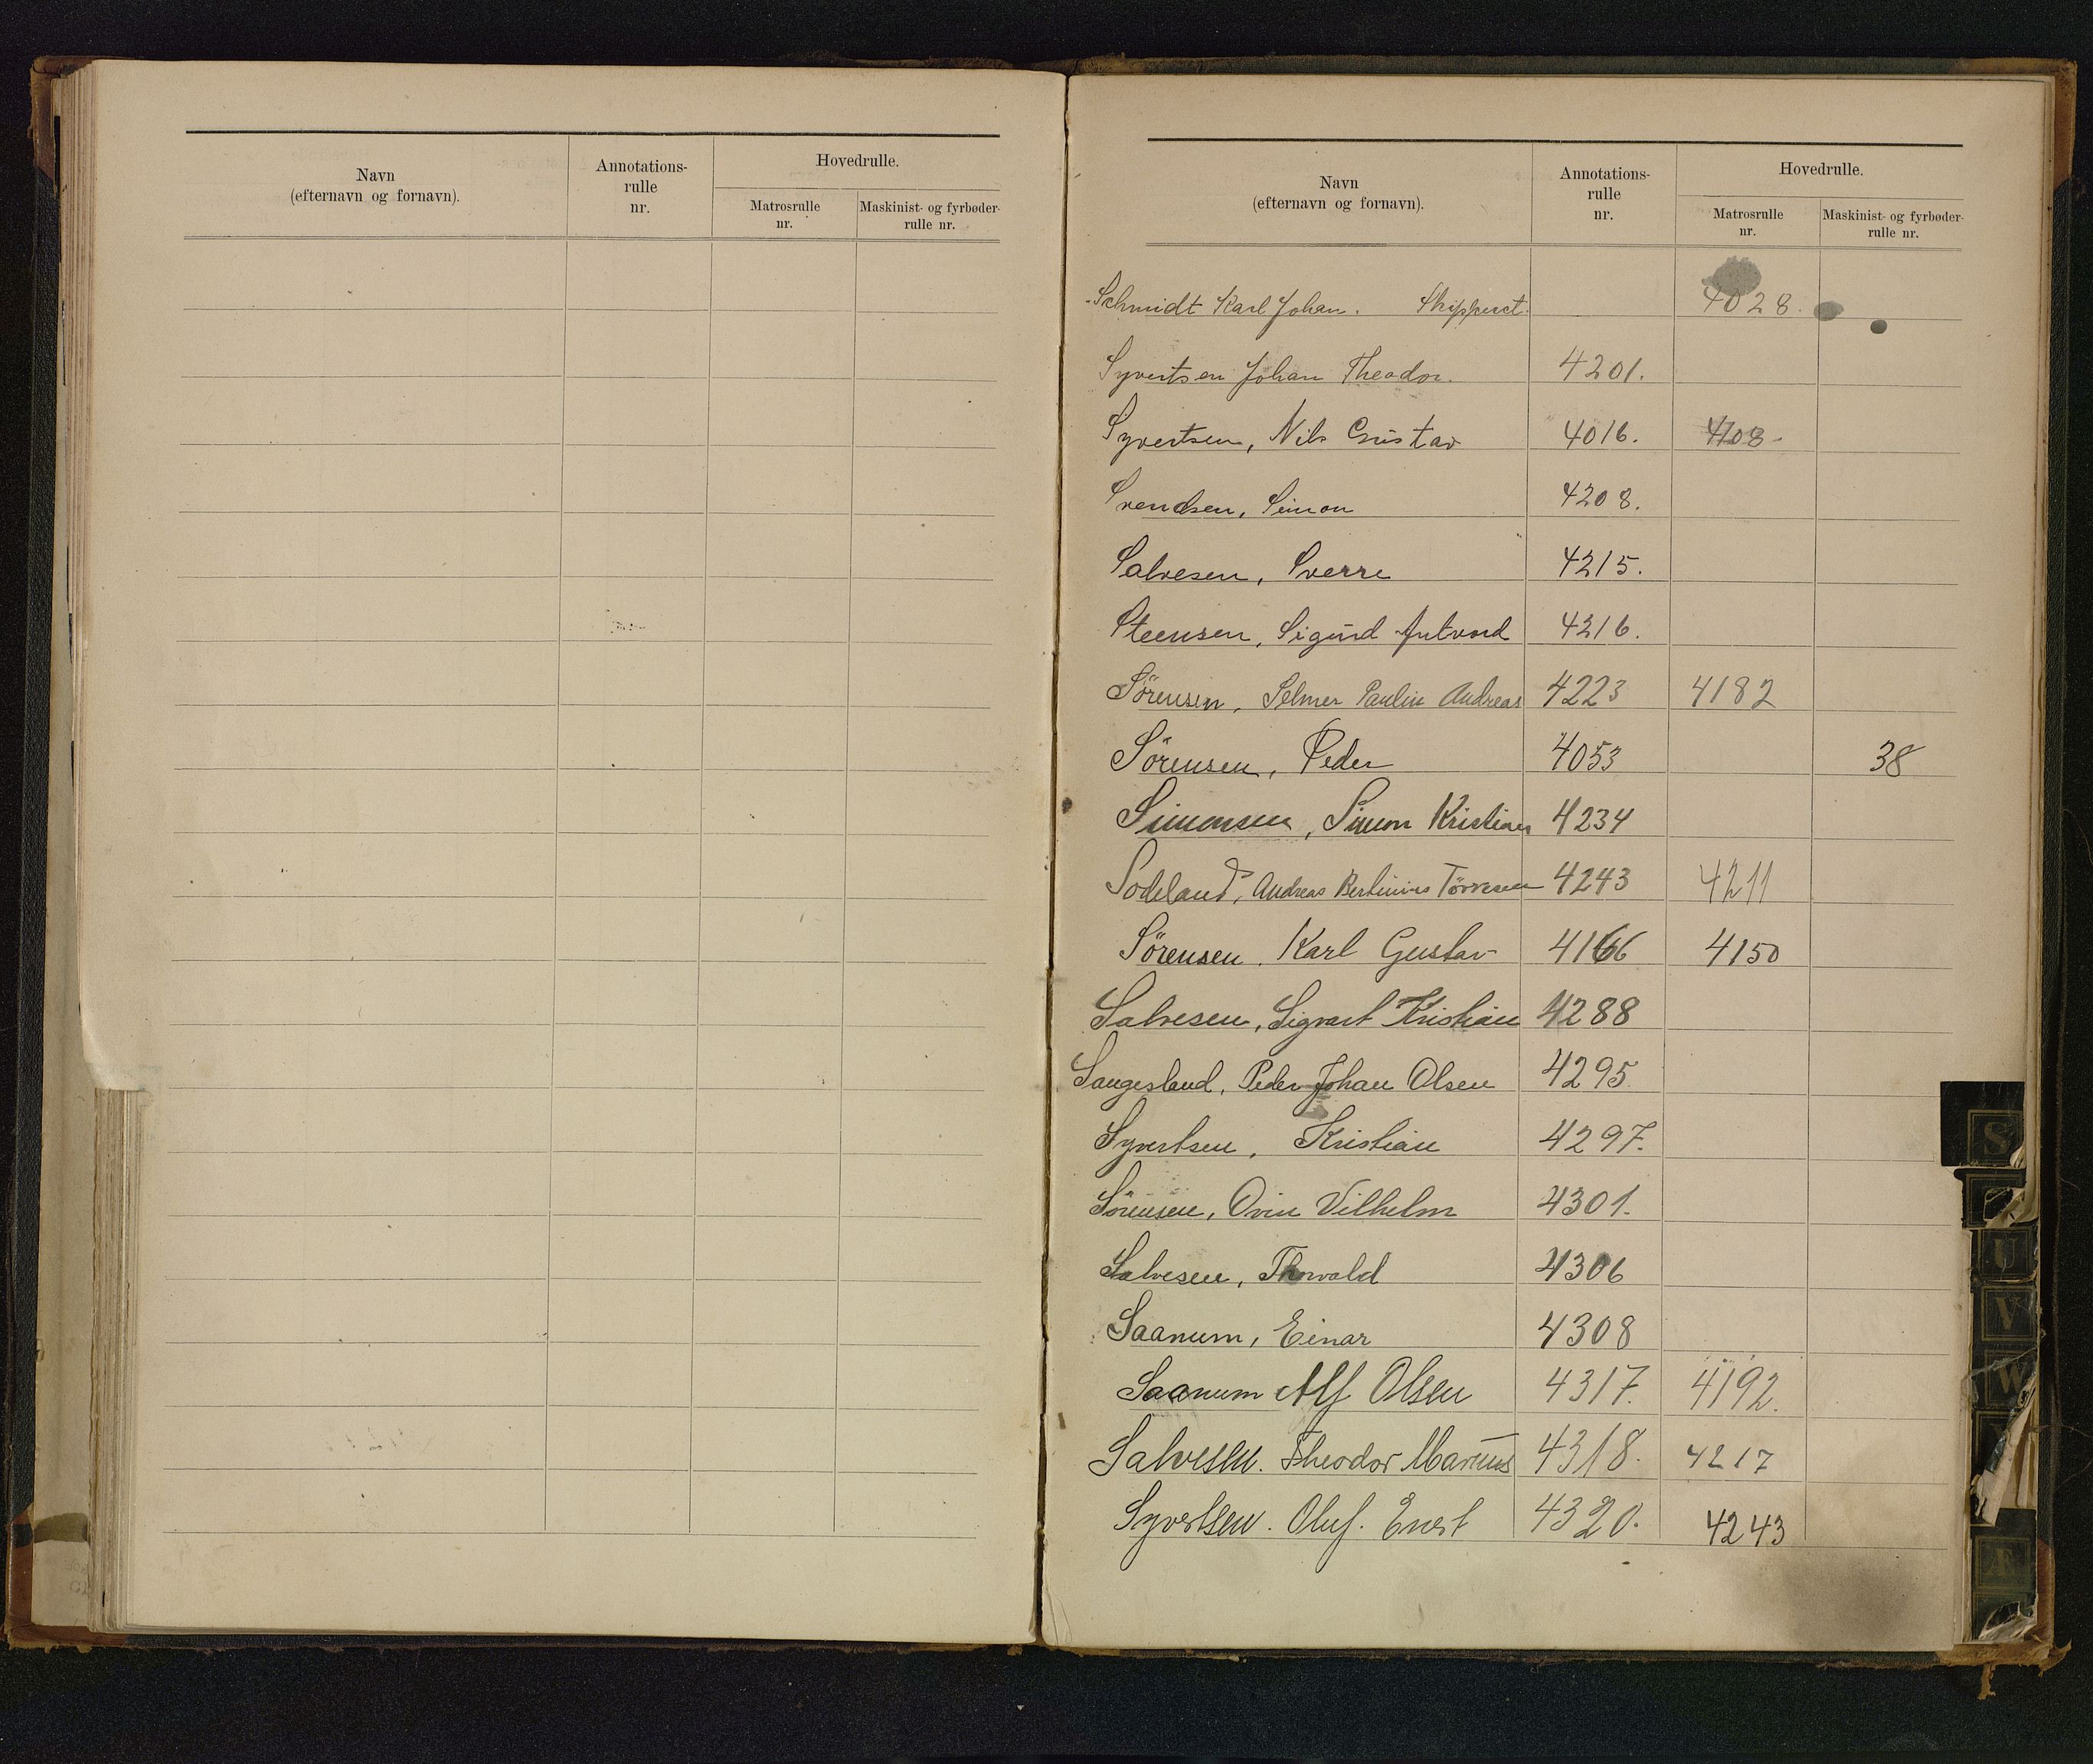 Navn
(efternavn og fornavn).
Annotations-
rulle
nr.
Hovedrulle.
Matrosrulle
nr.
Maskinist- og fyrbøder-
rulle nr.
Navn
(efternavn og fornavn).
Annotations-
rulle
nr.
Hovedrulle.
Matrosrulle
nr.
Maskinist- og fyrbøder-
rulle nr.
Schmidt Karl Johan. 4028.
Syvertsen Johan Theodor. 4201.
Syvertsen, Nils Gustav 4016. 4108-
Svendsen, Simon 4208.
Salvesen, Sverre 4215.
Steensen, Sigurd 4216.
Sörensen, Selmer Paulin Andreas 4223 4182
Sörensen, Peder 4053 38
Simonsen, Simon Kristian 4234
Sodeland, Andreas Bertinius Törresen 4243 4211
Sörensen. Karl Gustav 4166 4150
Salvesen, Sigvart Kristian 4288
Saugesland, Peder Johan Olsen 4295
Syvertsen, Kristian 4297.
Sörensen, Vilhelm 4301.
Salvesen, Thorvald 4306
Saanum, Einar 4308
Saanum Alf Olsen 4317. 4192.
Salvesen. Theodor Marius 4318. 4217
Syvertsen. Oluf. 4320. 4243
S
U
V
W
Æ